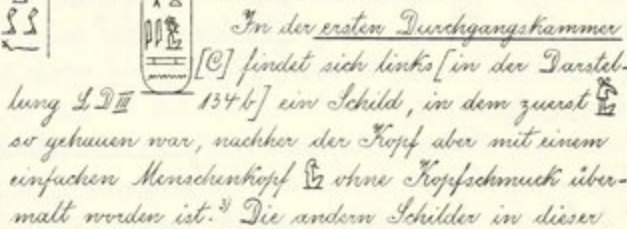 In der ersten Durchgangskammer
[C] findet sich links [in der Darstel-
lung LD III 134b] ein Schild, in dem zuerst
so gehauen war, nachher der Kopf aber mit einem
einfachen Menschenkopf ohne Kopfschmuck über-
malt worden ist. 3) Die andern Schilder in dieser